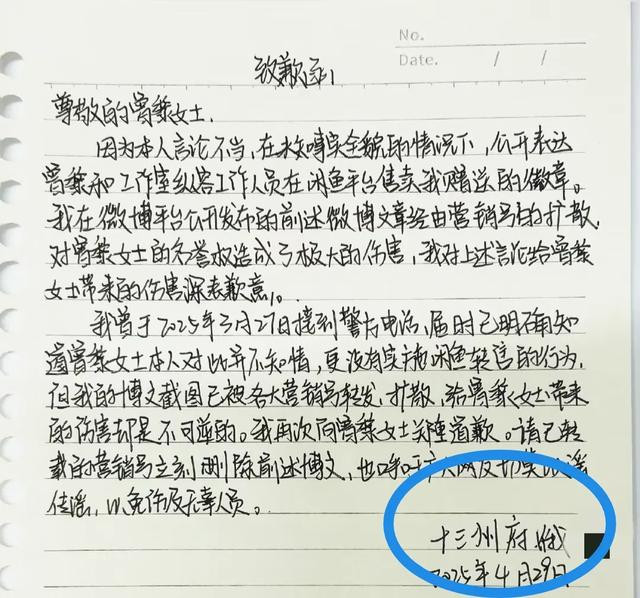 No.
Date.    /    /
致歉函
尊敬的曾黎女士,
因为本人言论不当,在未知事实全貌的情况下,公开表达
曾黎和工作室纵容工作人员在闲鱼平台售卖我赠送的徽章。
我在微博平台公开发布的前述微博文章经由营销号的扩散,
对曾黎女士的名誉权造成了极大的伤害,我对上述言论给曾黎
女士带来的伤害深表歉意。
我曾于2025年3月27日接到警方电话,届时已明确知
道曾黎女士本人对此并不知情,更没有实施闲鱼转售的行为,
但我的博文截图已被各大营销号转发、扩散,给曾黎女士带来
的伤害却是不可逆的。我再次向曾黎女士关隆道歉。请已转
载的营销号立刻删除前述博文,也呼吁广大网友切莫以谣
传谣,以免伤及无辜人员。
十三州府
2025年4月29日